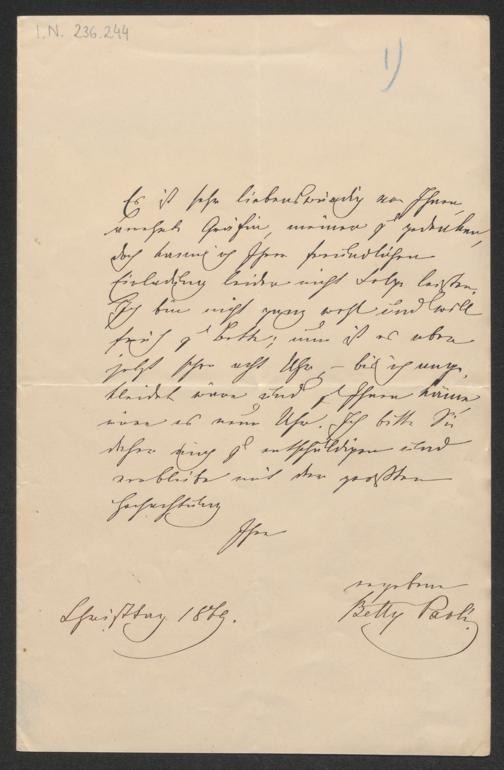 I.N. 236.244
1)
Es ist sehr liebenswürdig von Ihnen,
verehrte Gräfin, meiner zu gedenken,
doch kann ich Ihrer freundlichen
Einladung leider nicht Folge leisten.
Ich bin nicht ganz wohl und will
früh zu Bette; nun ist es aber
jetzt schon acht Uhr – bis ich ange-
kleidet wäre und zu Ihnen käme
wäre es neun Uhr. Ich bitte Sie
daher mich zu entschuldigen und
verbleibe mit der größten
Hochachtung
Ihre
ergebene
Betty Paoli.
Christtag 1869.